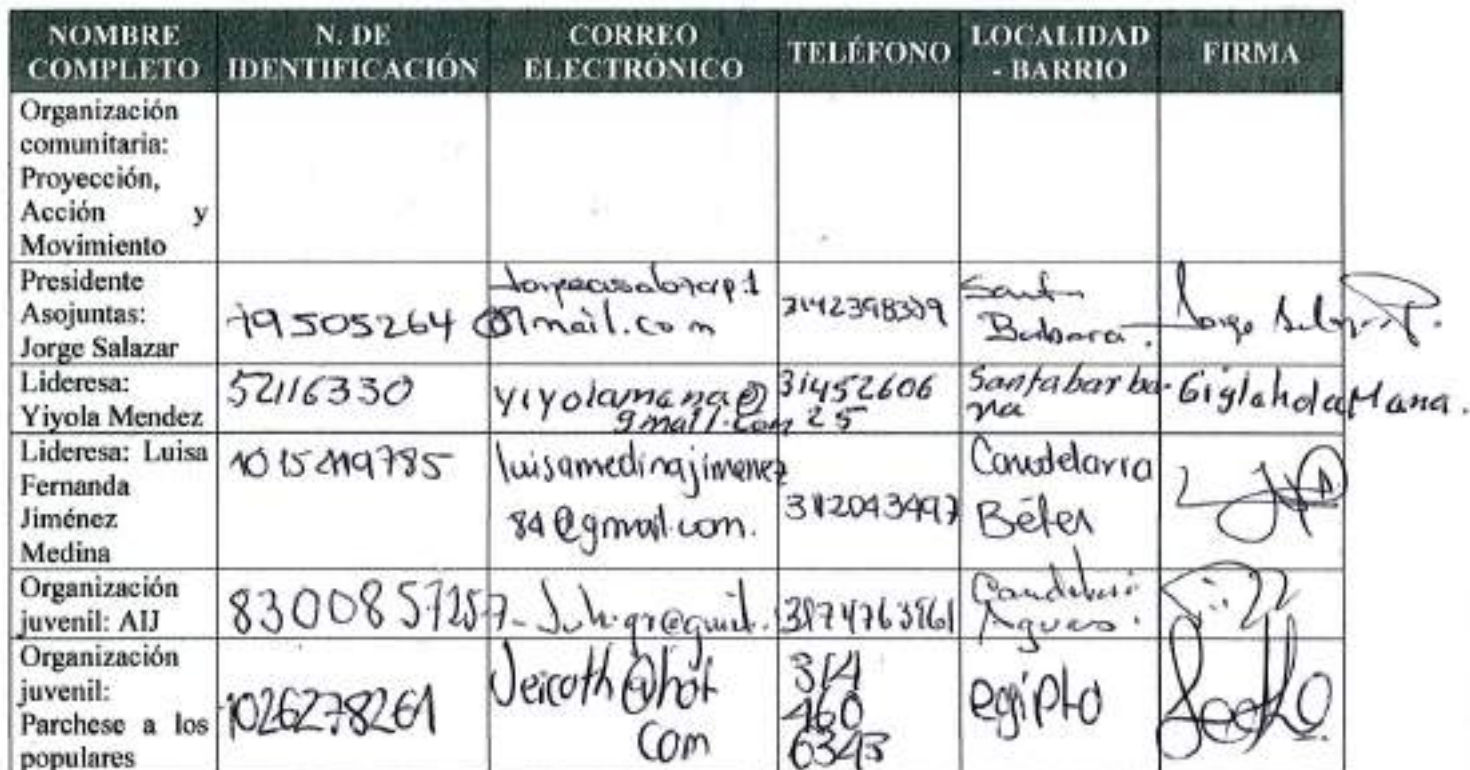 NOMBRE COMPLETO N. DE IDENTIFICACIÓN CORREO ELECTRÓNICO TELÉFONO LOCALIDAD - BARRIO FIRMA
Organización
comunitaria:
Proyección,
Acción y
Movimiento
Presidente
Asojuntas:
Jorge Salazar
79505264
3142398309
Santa
Barbara.
Lideresa:
Yiyola Mendez
52116330
yiyolamana@
gmail.com
31452606
25
Santabarba-
ra
Lideresa: Luisa
Fernanda
Jiménez
Medina
luisamedinajimenez
84@gmail.com.
3112043497
Candelaria
Belén
Organización
juvenil: AIJ
Aguas.
Organización
juvenil:
Parchese a los
populares
1026278261
Jeicoth@hot
com
314
460
6343
egipto